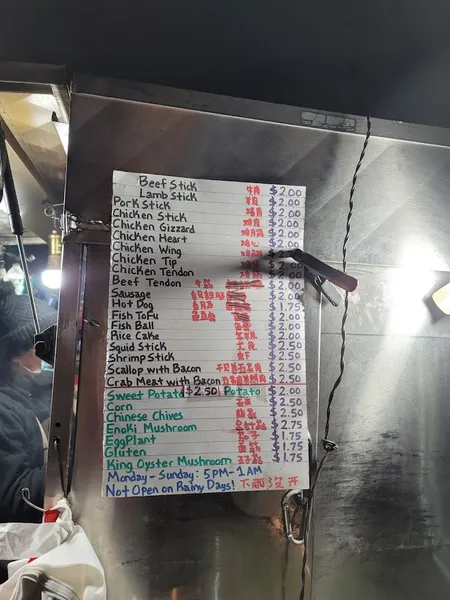 Beef Stick 牛肉 $2.00
Lamb Stick 羊肉 $2.00
Pork Stick $2.00
Chicken Stick 鸡肉 $2.00
Chicken Gizzard $2.00
Chicken Heart 鸡心 $2.00
Chicken Wing $2.00
Chicken Tip $2.00
Chicken Tendon $2.00
Beef Tendon 牛筋 $2.00
Sausage $2.00
Hot Dog $1.75
Fish ToFu $2.00
Fish Ball $2.00
Rice Cake $2.00
Squid Stick $2.50
Shrimp Stick $2.50
Scallop with Bacon $2.50
Crab Meat with Bacon $2.50
Sweet Potato $2.50 Potato $2.00
Corn 玉米 $2.50
Chinese Chives 韭菜 $2.50
Enoki Mushroom 金针菇 $2.75
EggPlant 茄子 $1.75
Gluten 面筋 $1.75
King Oyster Mushroom $1.75
Monday-Sunday: 5PM-1AM
Not Open on Rainy Days! 下雨没开